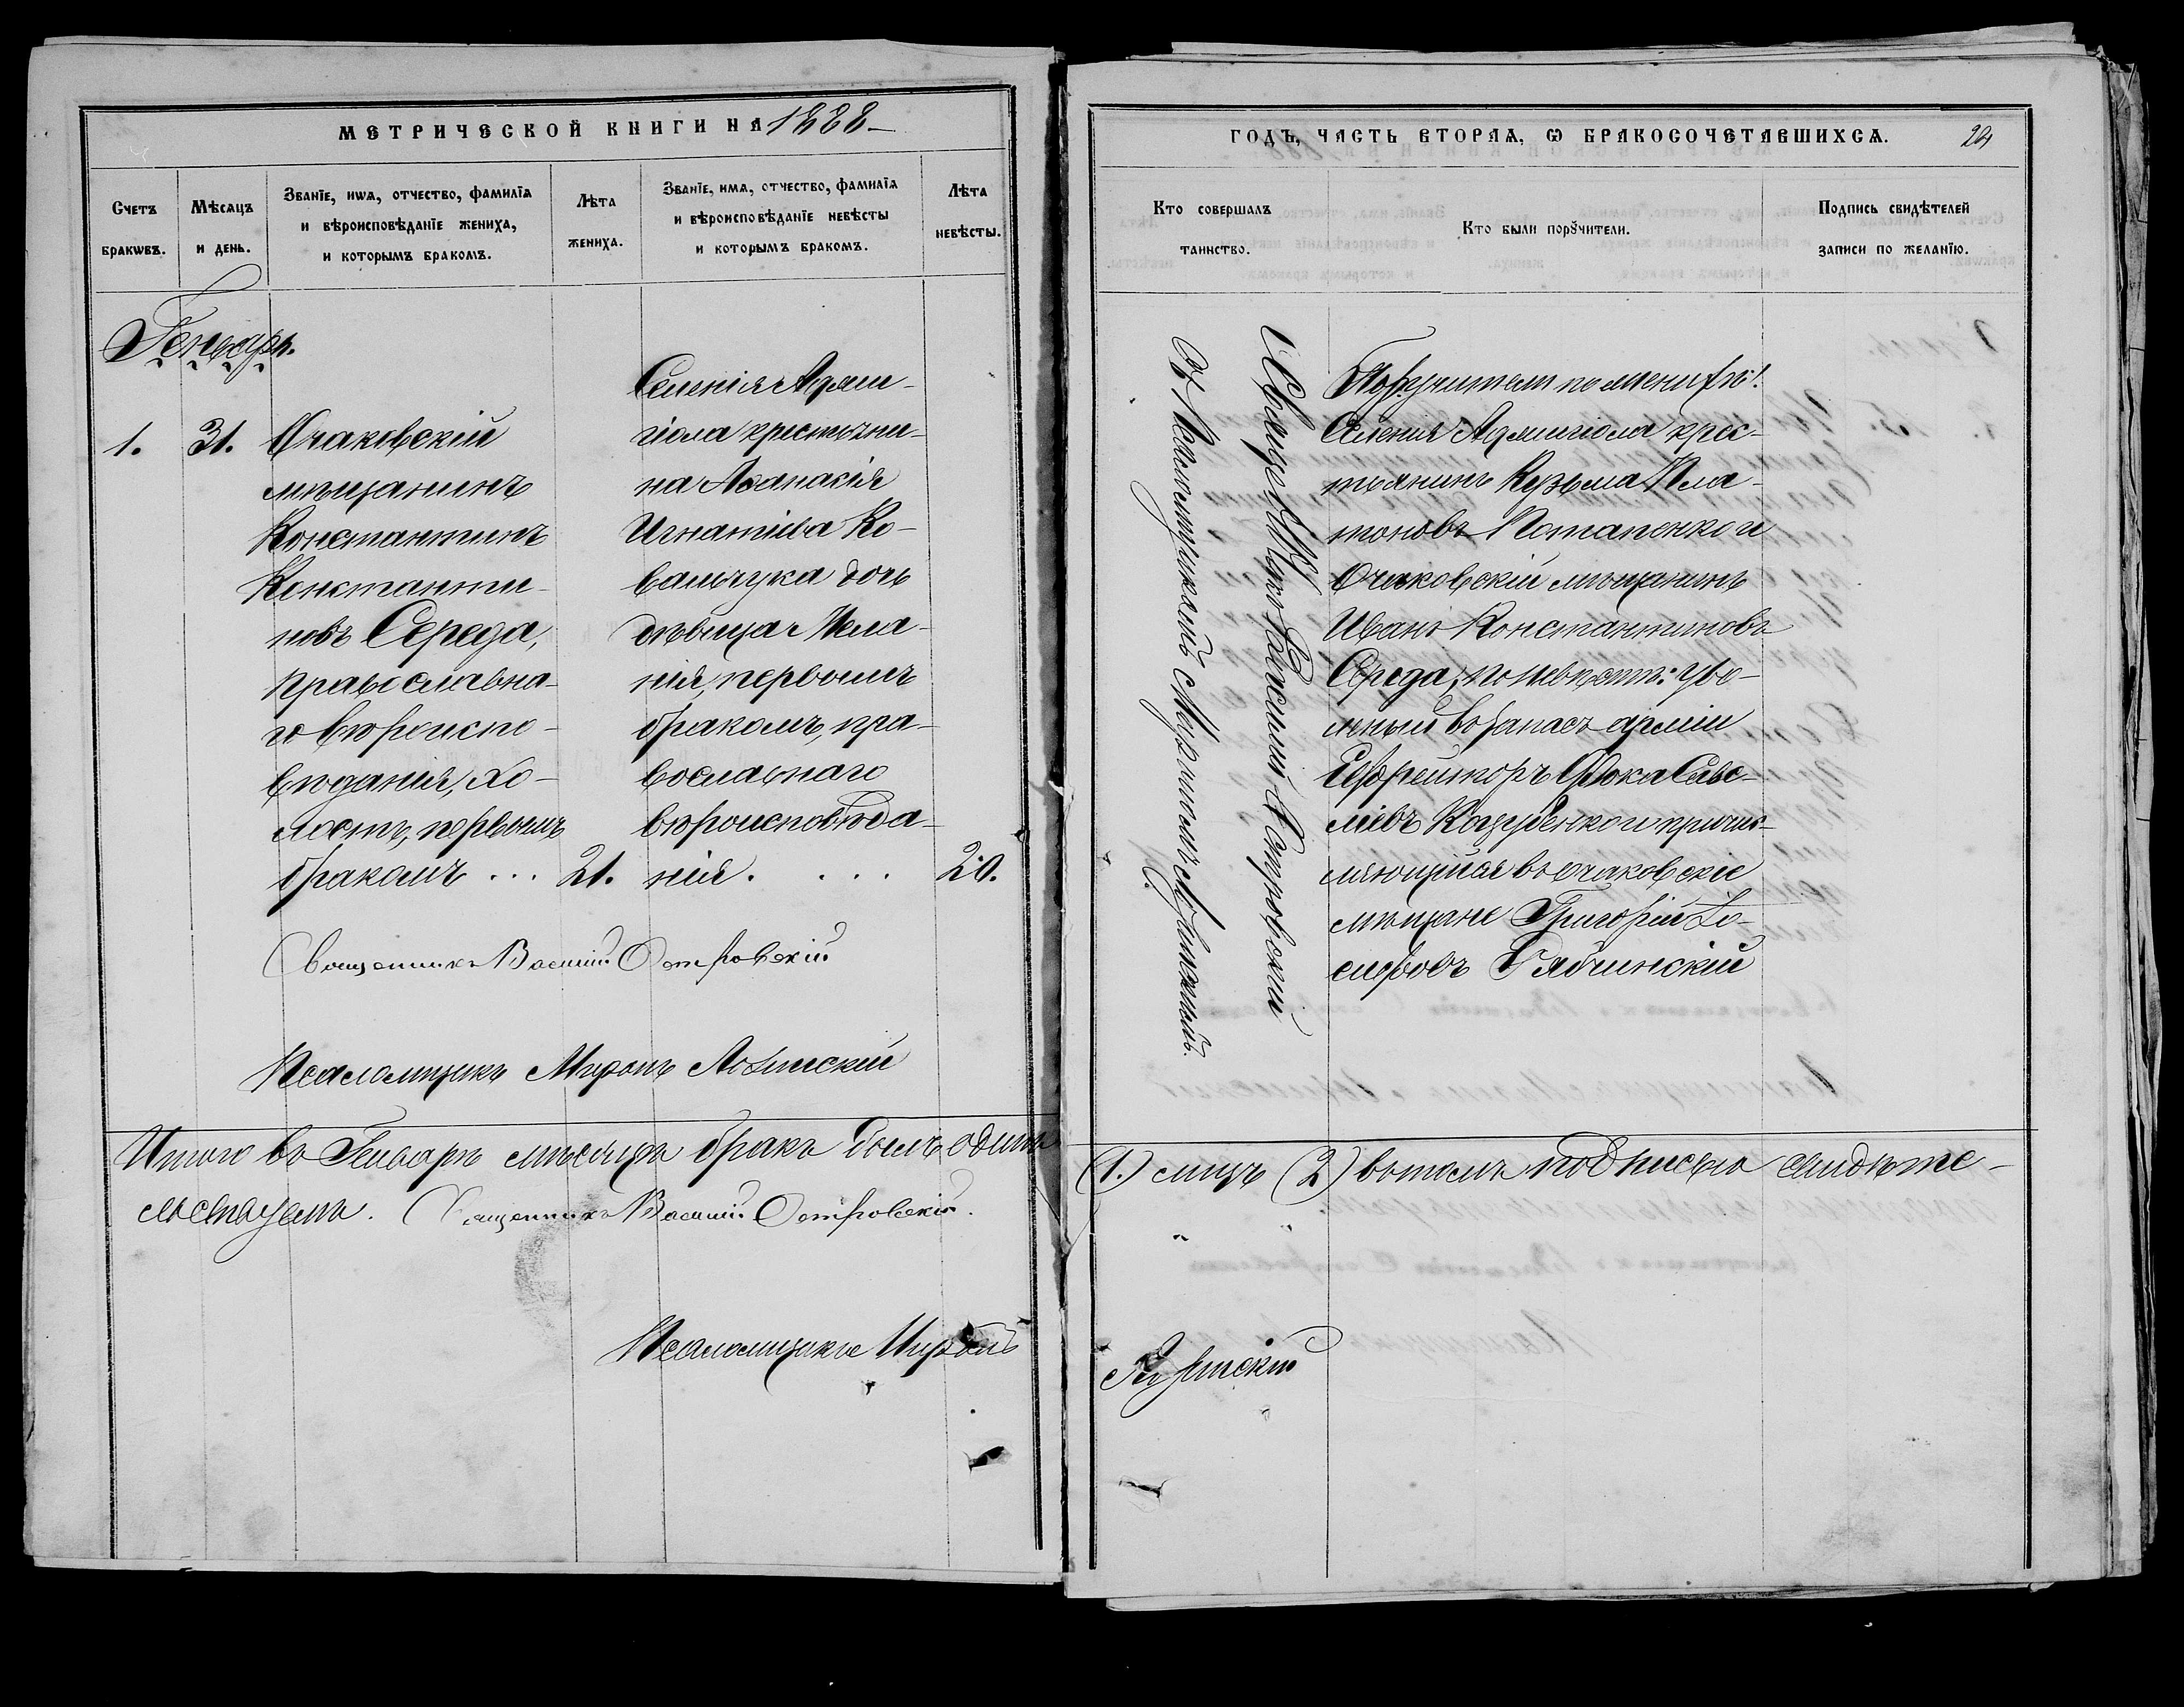 МЕТРИЧЕСКОЙ КНИГИ НА 1888
Счетъ браковъ.
Мѣсяцъ и день.
Званїе, имя, отчество, фамилїя и вѣроисповѣданїе жениха, и которымъ бракомъ.
Лѣта жениха.
Званїе, имя, отчество, фамилїя и вѣроисповѣданїе невѣсты и которымъ бракомъ.
Лѣта невѣсты.
Генварь.
1.
31.
Очаковскій
мѣщанинъ
Константинъ
Константи-
новъ Середа,
православна-
го вѣроиспо-
вѣданія, хо-
лостъ, первымъ
бракомъ ...
21.
Селенія Аджи-
гіола крестьяни-
на Аѳанасія
Игнатіева Ко-
вальчука дочь
дѣвица Мела-
нія, первымъ
бракомъ, пра-
вославнаго
вѣроисповѣда-
нія. . . .
20.
Священникъ Василій Островскій
Псаломщикъ Миронъ
Итого въ Генварѣ мѣсяцѣ бракъ былъ одинъ
льствуемъ. Священникъ Василій Островскій.
Псаломщикъ Миронъ
ГОДЪ, ЧАСТЬ ВТОРАЯ, Ѡ БРАКОСОЧЕТАВШИХСЯ.
Кто совершалъ таинство.
Кто были порꙋчители.
Подпись свидѣтелей записи по желанїю.
Священникъ Василій Островскій
съ Псаломщикомъ Мирономъ
Поручители по женихѣ:
Селенія Аджигіола крес-
тьянинъ Кузьма Пла-
тоновъ Потапенко и
Очаковскій мѣщанинъ
Иванъ Константиновъ
Середа; по невѣстѣ: уво-
леный въ запасъ арміи
Ефрейторъ Фока Саве-
ліевъ и причис-
ляющійся въ очаковскіе
мѣщане Григорій Іо-
сифовъ Рябчинскій
(1.) лицъ (2) въ томъ подписью свидѣте-